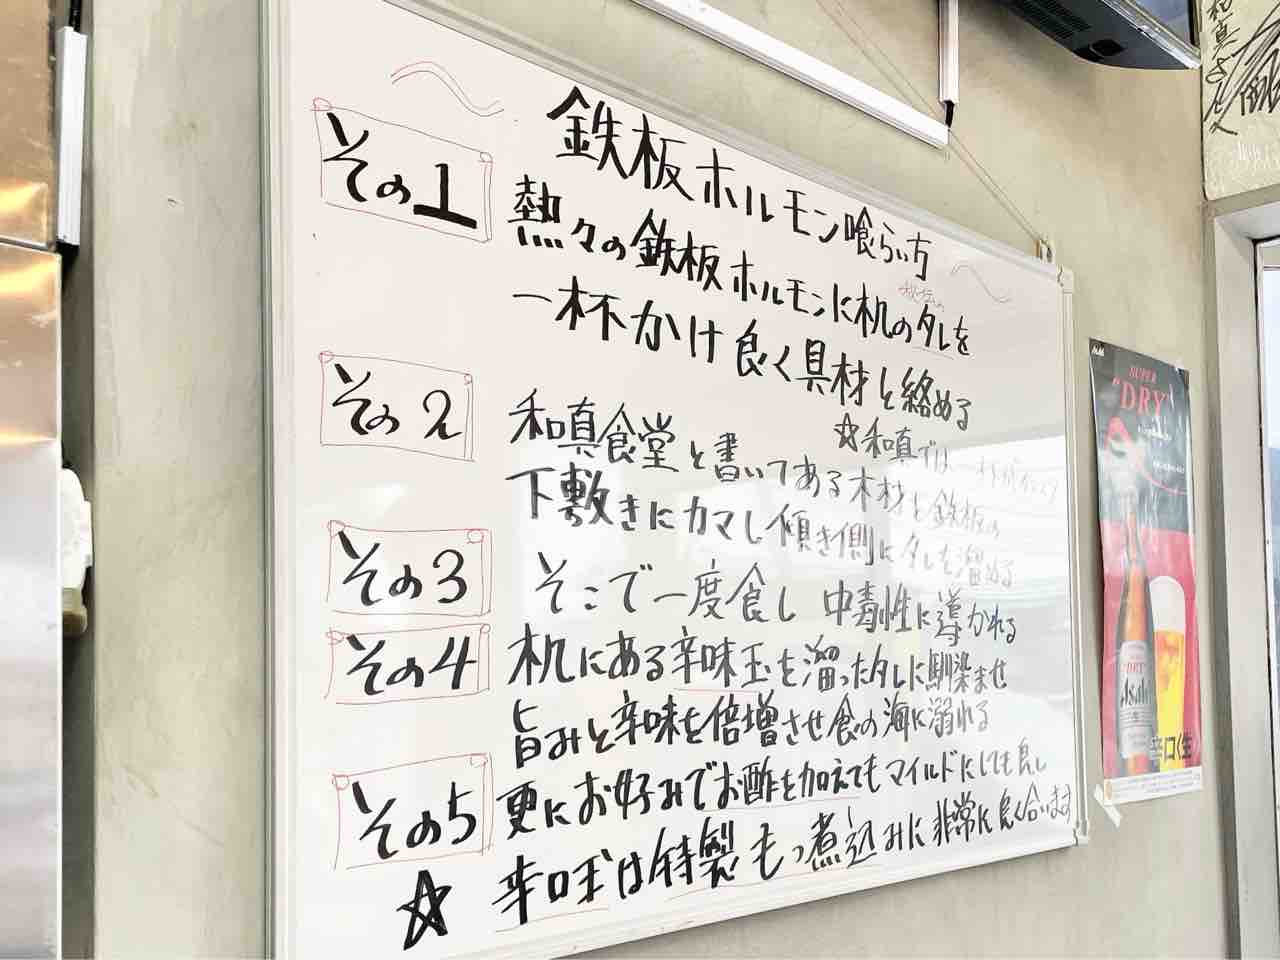 鉄板ホルモン喰らい方
その1
熱々の鉄板ホルモンに机のタレを
一杯かけ良く具材と絡める
☆和真では一杯が
その2
和真食堂と書いてある木材を鉄板の
下敷きにカマし傾き側にタレを溜める
その3
そこで一度食し 中毒性に導かれる
その4
机にある辛味玉を溜ったタレに馴染ませ
旨みと辛味を倍増させ食の海に溺れる
その5
更にお好みでお酢を加えてもマイルドにしても良し
☆ 辛口玉は特製もつ煮込みに非常に良く合います
Asahi
SUPER
"DRY"
Asahi
辛口〈生